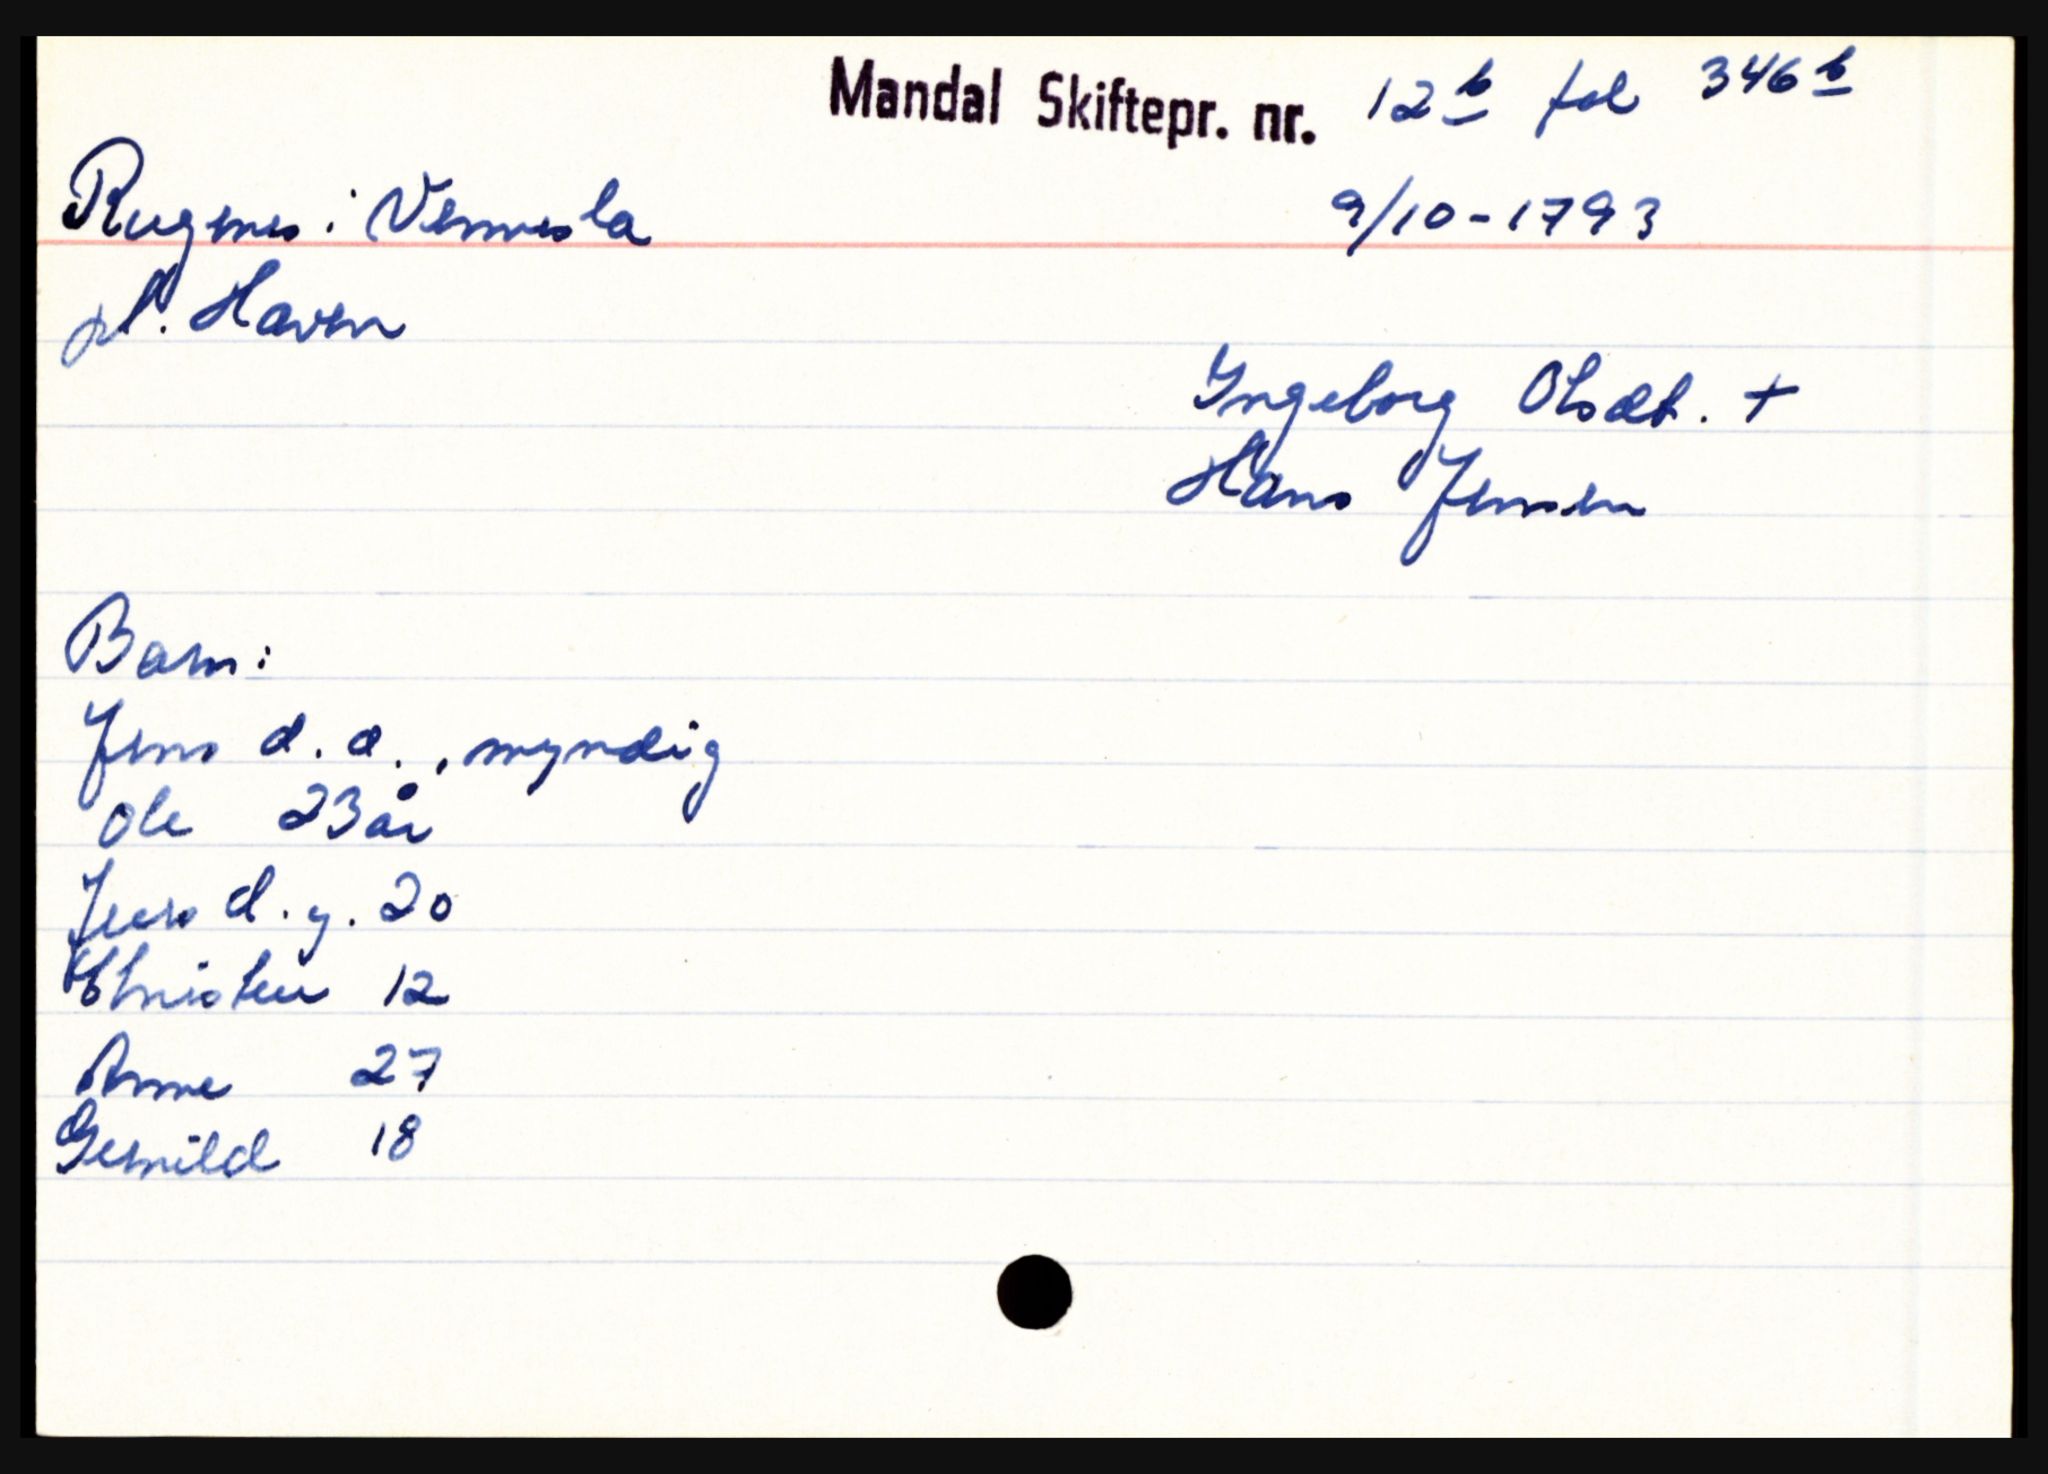 Mandal Skiftepr. nr. 12 b fol 346 b
Rugenes i Vennesla 9/10-1793
pl. Haven
Ingeborg Olsdt. +
Hans Jensen
Barn:
Jens d.æ., myndig
Ole 23 år
Jens d.y. 20
Christen 12
Anne 27
Gernild 18